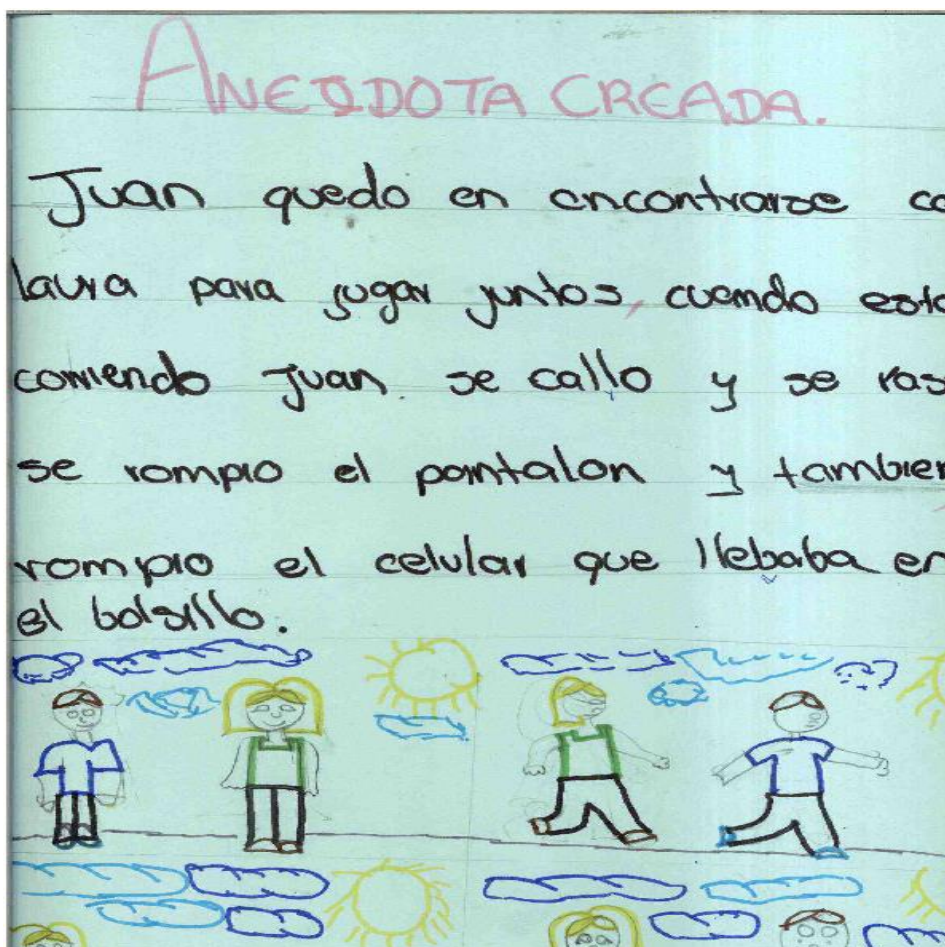 ANECDOTA CREADA.
Juan quedo en encontrarse co
laura para jugar juntos, cuando esta
corriendo Juan se callo y se ras
se rompio el pantalon y tambien
rompio el celular que llebaba en
el bolsillo.